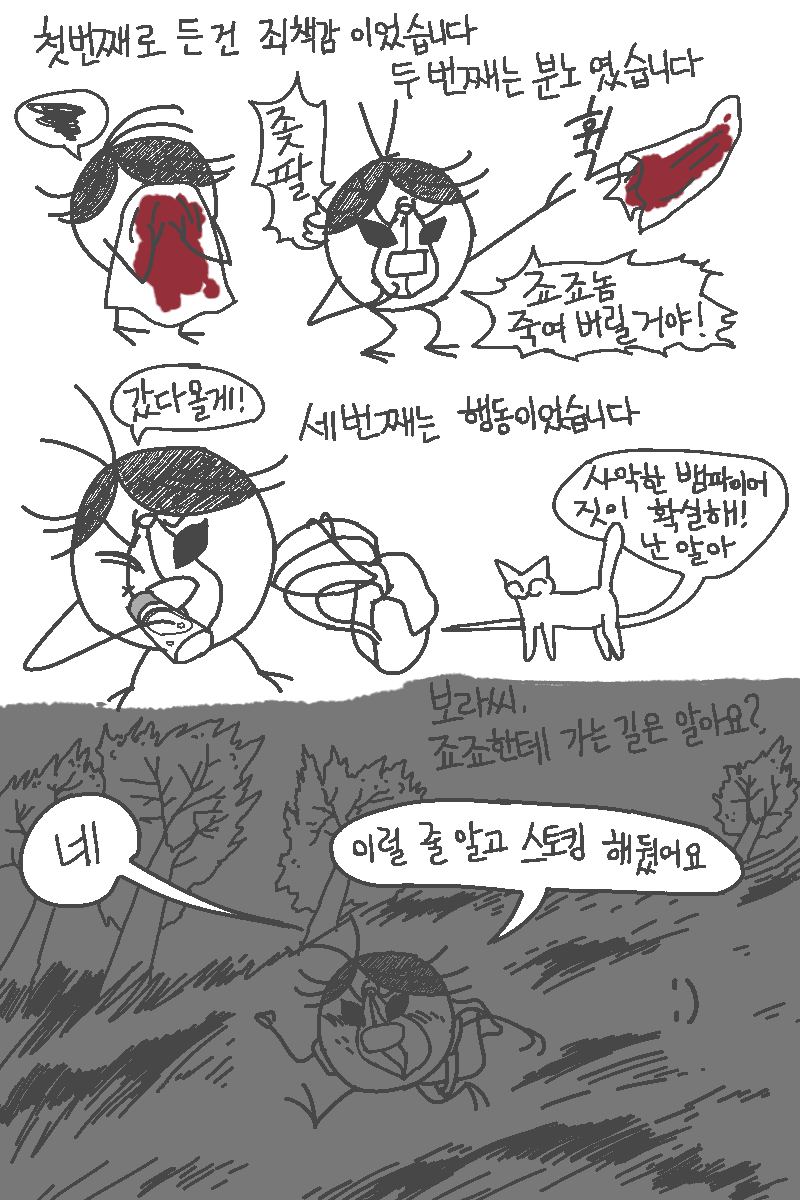 첫번째로 든 건 죄책감 이었습니다
두번째는 분노 였습니다
좆
팔
휙
죠죠놈
죽여 버릴거야!
갔다올게!
세번째는 행동이었습니다
사악한 뱀파이어
짓이 확실해!
난 알아
보라씨,
죠죠한테 가는 길은 알아요?
네
이럴 줄 알고 스토킹 해뒀어요
:)